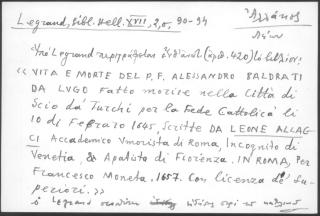 Legrand, Bibl. Hell. XVII, 2,0, 90-94
Ἀλλάτιος
Λέων
Ὑπὸ Legrand περιγράφεται ἐνθ' ἀνωτ. (ἀριθ. 420) τὸ βιβλίον:
« VITA E MORTE DEL P. F. ALESSANDRO BALDRATI
DA LUGO fatto morire nella Città di
Scio da' Turchi per la Fede Cattolica li
10 di Febraro 1645, Scritte DA LEONE ALLAC
CI Accademico Umorista di Roma, Incognito di
Venetia, & Apatista di Fiorenza. IN ROMA, Per
Francesco Moneta. 1657. Con licenza de' Su-
periori. »
ὁ Legrand